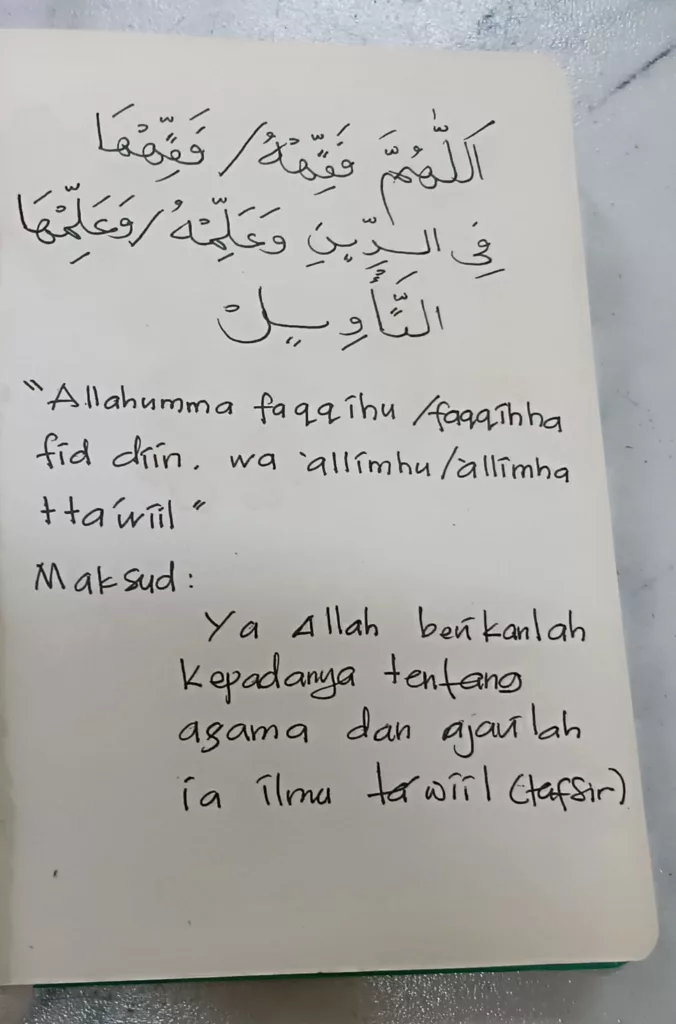 اَللّٰهُمَّ فَقِّهْهُ / فَقِّهْهَا
فِى الدِّينِ وَعَلِّمْهُ / وَعَلِّمْهَا
التَّأْوِيلْ
"Allahumma faqqihu /faqqihha
fid diin. wa 'allimhu/'allimha
tta'wiil"
Maksud:
Ya Allah berikanlah
kepadanya tentang
agama dan ajarilah
ia ilmu ta'wiil (tafsir)